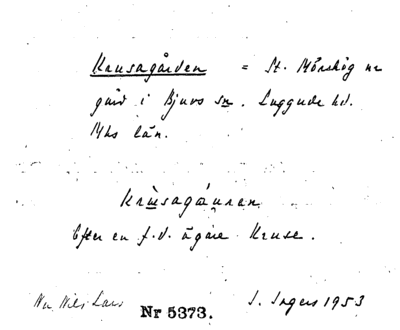 Krusagården = St. Mörshög nr
gård i Bjuvs sn. Luggude hd.
Mhs län.
Krùsagáuran
Efter en f.d. ägare Kruse.
Nils Lars Nr 5373. I. Ingers 1953